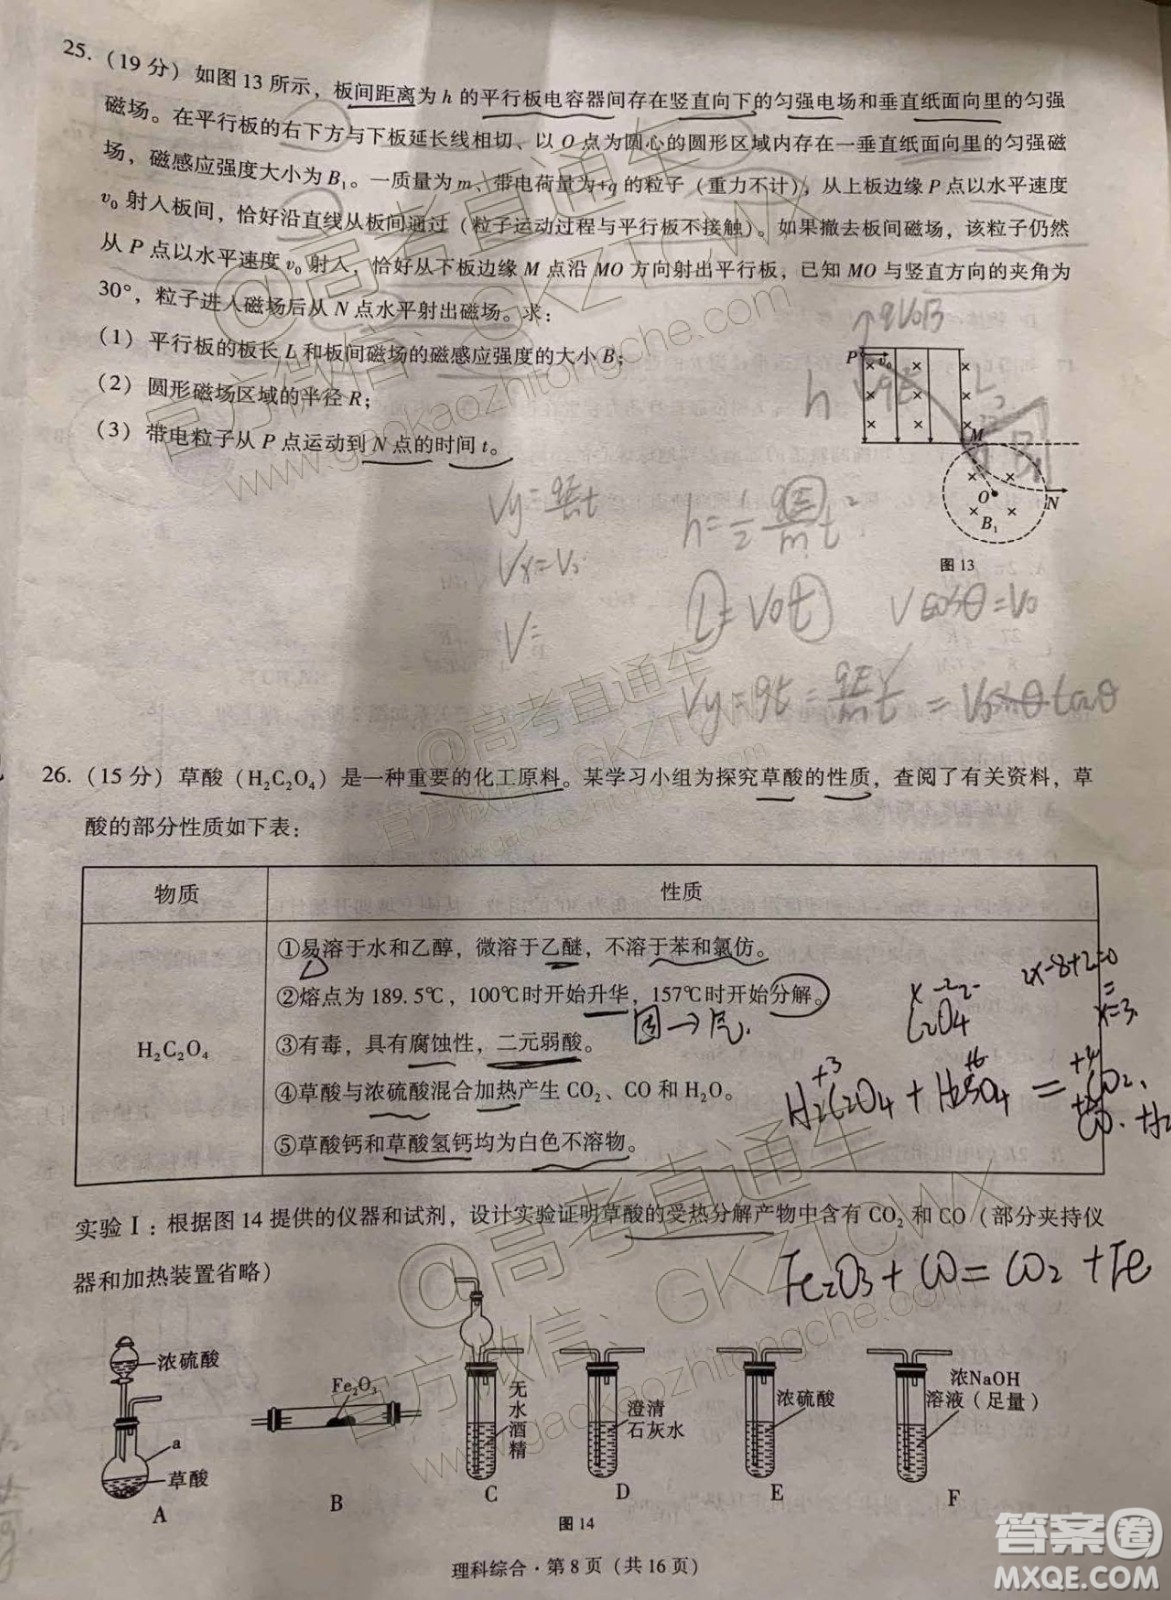 25.（19 分）如图 13 所示，板间距离为 h 的平行板电容器间存在竖直向下的匀强电场和垂直纸面向里的匀强
磁场。在平行板的右下方与下板延长线相切、以 O 点为圆心的圆形区域内存在一垂直纸面向里的匀强磁
场，磁感应强度大小为 B₁。一质量为 m、带电荷量为+q 的粒子（重力不计），从上板边缘 P 点以水平速度
v₀ 射入板间，恰好沿直线从板间通过（粒子运动过程与平行板不接触）。如果撤去板间磁场，该粒子仍然
从 P 点以水平速度 v₀ 射入，恰好从下板边缘 M 点沿 MO 方向射出平行板，已知 MO 与竖直方向的夹角为
30°，粒子进入磁场后从 N 点水平射出磁场。求：
（1）平行板的板长 L 和板间磁场的磁感应强度的大小 B；
（2）圆形磁场区域的半径 R；
（3）带电粒子从 P 点运动到 N 点的时间 t。
qv₀B
P v₀
h qE L
M B₁
O N
B₁
图 13
Vy = qE/m t
h = 1/2 qE/m t²
Vx = V₀
L = V₀t
Vcosθ = V₀
V =
Vy = gt = qE/m t = V₀ tanθ
26.（15 分）草酸（H₂C₂O₄）是一种重要的化工原料。某学习小组为探究草酸的性质，查阅了有关资料，草
酸的部分性质如下表：
物质 性质
H₂C₂O₄
①易溶于水和乙醇，微溶于乙醚，不溶于苯和氯仿。
②熔点为 189.5℃，100℃时开始升华，157℃时开始分解。
③有毒，具有腐蚀性，二元弱酸。
④草酸与浓硫酸混合加热产生 CO₂、CO 和 H₂O。
⑤草酸钙和草酸氢钙均为白色不溶物。
固→气
x -2 2-
C₂O₄
2x-8+2=0
x=3
+3 +6 +4
H₂C₂O₄ + H₂SO₄ = CO₂、
+2
CO、+H₂
实验Ⅰ：根据图 14 提供的仪器和试剂，设计实验证明草酸的受热分解产物中含有 CO₂ 和 CO（部分夹持仪
器和加热装置省略）
Fe₂O₃ + CO = CO₂ + Fe
浓硫酸
a
草酸
A
Fe₂O₃
B
无水酒精
C
澄清
石灰水
D
浓硫酸
E
浓NaOH
溶液（足量）
F
图 14
理科综合·第 8 页（共 16 页）
@高考直通车
官方微信：GKZTCWX
www.gaokaozhitongche.com
@高考直通车
@高考直通车
官方微信：GKZTCWX
www.gaokaozhitongche.com
答案圈
MXQE.COM